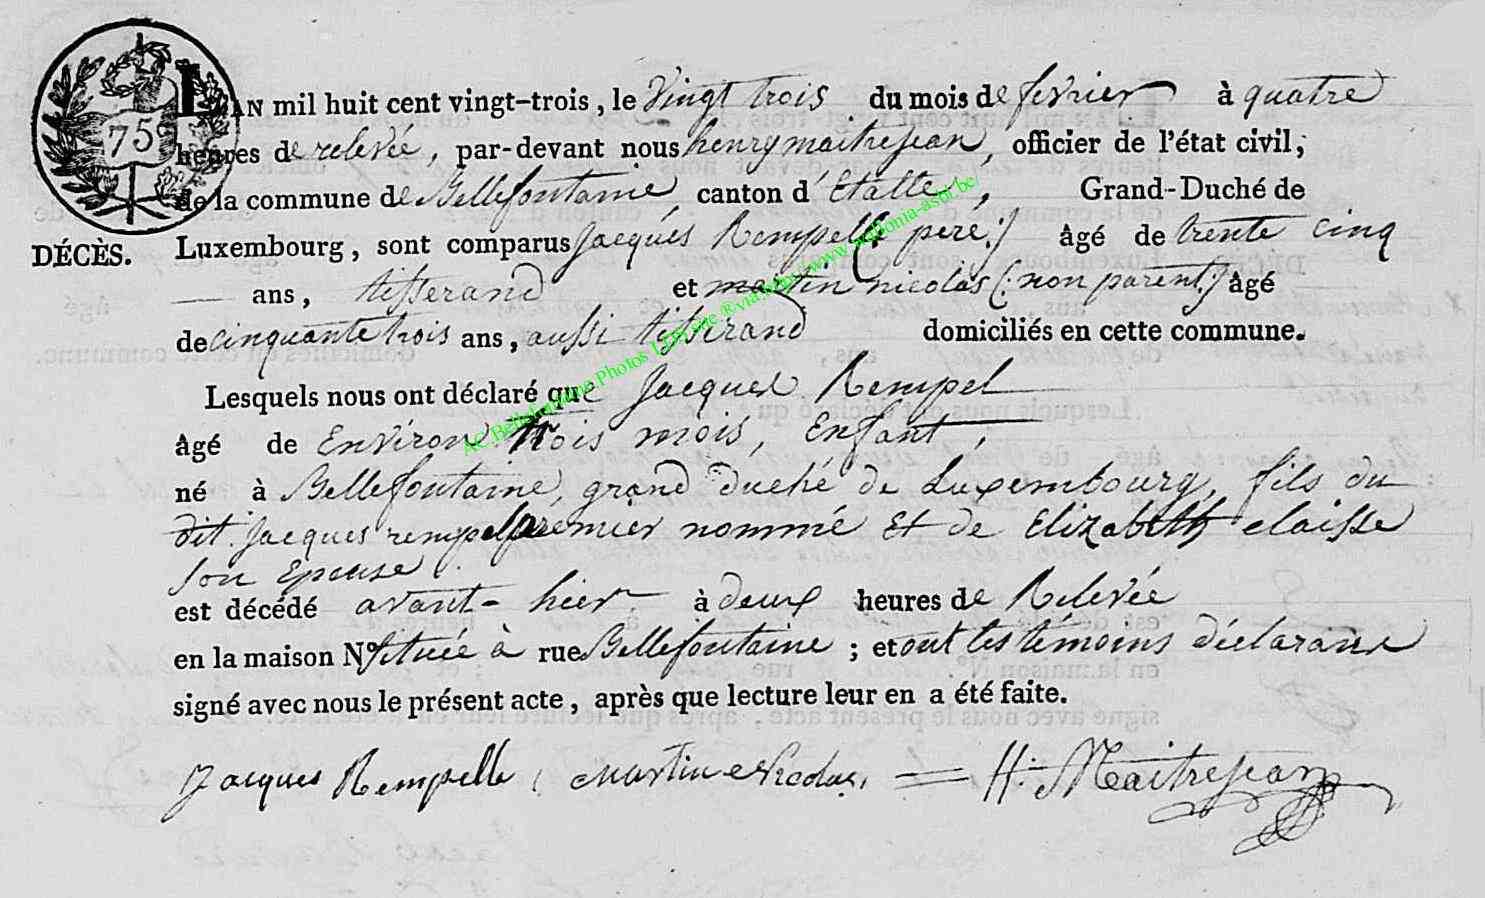 75
L'AN mil huit cent vingt-trois, le vingt trois du mois de fevrier à quatre
heures de relevée, par-devant nous henry maitrejean, officier de l'état civil,
de la commune de Bellefontaine, canton d'Etalle, Grand-Duché de
DÉCÈS.
Luxembourg, sont comparus Jacques Rempelle (: pere :) âgé de trente cinq
ans, tisserand et martin nicolas (: non parent :) âgé
de cinquante trois ans, aussi tisserand domiciliés en cette commune.
Lesquels nous ont déclaré que Jacques Rempel
âgé de Environ trois mois, Enfant,
né à Bellefontaine, grand duché de Luxembourg, fils du
dit Jacques rempel premier nommé Et de Elizabeth claisse
son Epouse.
est décédé avant-hier à deux heures de Relevée
en la maison N° située à rue Bellefontaine ; et ont les témoins déclarans
signé avec nous le présent acte, après que lecture leur en a été faite.
Jacques Rempelle Martin Nicolas H. Maitrejean
AC Bellefontaine Photos